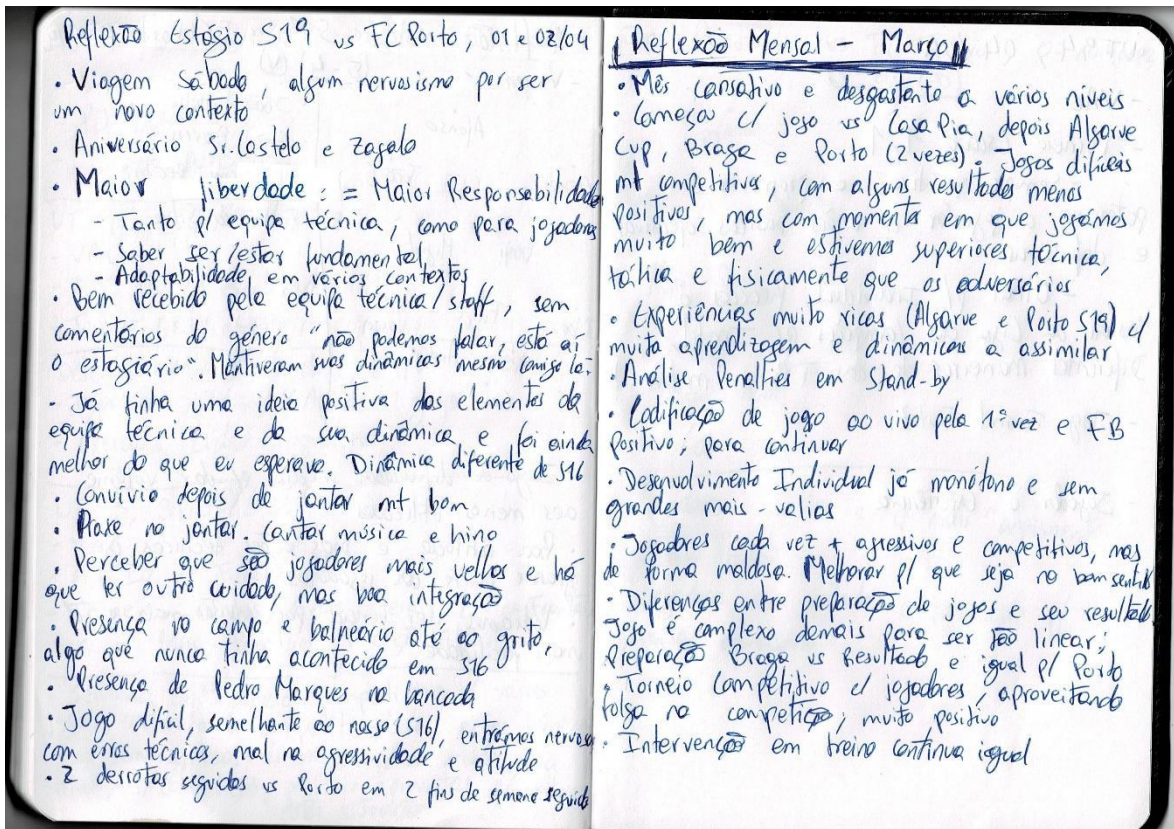 Reflexão Estágio S19 vs FC Porto, 01 e 02/04
• Viagem Sábado, algum nervosismo por ser
um novo contexto
• Aniversário Sr. Castelo e Zagalo
• Maior liberdade : = Maior Responsabilidade
- Tanto p/ equipa técnica, como para jogadores
- Saber ser/estar fundamental
- Adaptabilidade em vários contextos
• Bem recebido pela equipa técnica/staff, sem
comentários do género "não podemos falar, está aí
o estagiário". Mantiveram suas dinâmicas mesmo comigo lá.
• Já tinha uma ideia positiva dos elementos da
equipa técnica e da sua dinâmica e foi ainda
melhor do que eu esperava. Dinâmica diferente de S16
• Convívio depois de jantar mt bom
• Praxe no jantar. Cantar música e hino
• Perceber que são jogadores mais velhos e há
que ter outro cuidado, mas boa integração
• Presença no campo e balneário até ao grito
algo que nunca tinha acontecido em S16
• Presença de Pedro Marques na bancada
• Jogo difícil, semelhante ao nosso (S16), entrámos nervosos
com erros técnicos, mal na agressividade e atitude
• 2 derrotas seguidas vs Porto em 2 fins de semana seguidos
Reflexão Mensal - Março
• Mês cansativo e desgastante a vários níveis
• Começa c/ jogo vs Casa Pia, depois Algarve
Cup, Braga e Porto (2 vezes). Jogos difíceis
mt competitivos, com alguns resultados menos
positivos, mas com momentos em que jogámos
muito bem e estivemos superiores técnica,
tática e fisicamente que os adversários
• Experiências muito ricas (Algarve e Porto S19) c/
muita aprendizagem e dinâmicas a assimilar
• Análise Penalties em Stand-by
• Codificação de jogo ao vivo pela 1ª vez e FB
positivo; para continuar
• Desenvolvimento Individual já monótono e sem
grandes mais-valias
• Jogadores cada vez + agressivos e competitivos, mas
de forma maldosa. Melhorar p/ que seja no bom sentido
• Diferenças entre preparação de jogos e seu resultado
Jogo é complexo demais para ser tão linear;
Preparação Braga vs Resultado e igual p/ Porto
• Torneio Competitivo c/ jogadores, aproveitando
folga na competição; muito positivo
• Intervenção em treino continua igual